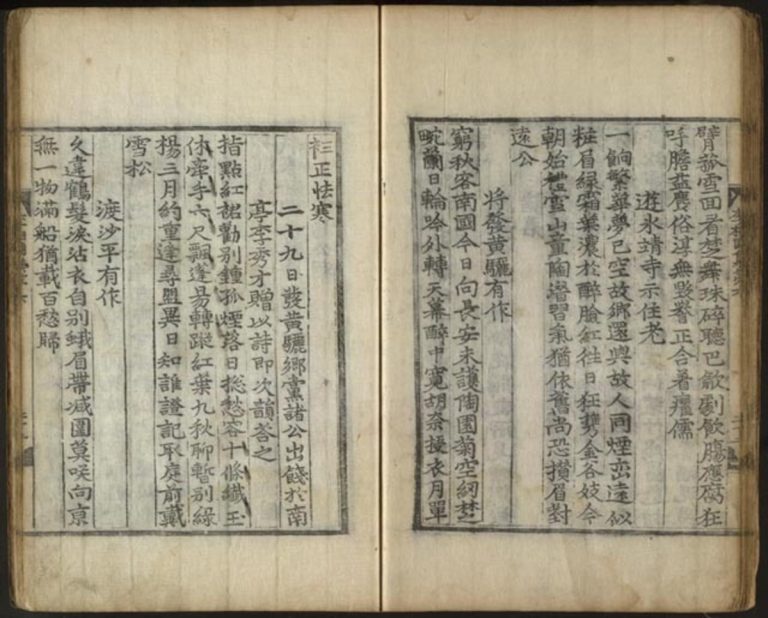 臂 雪面看楚舞珠碎聽巴歈劇飲膓應腐狂
呼膽 麁俗淳無毀譽正合着癯儒
遊氷靖寺示住老
一餉繁華夢已空故鄉還與故人同煙巒遠似
粧眉綠霜葉濃於醉臉紅往日狂携金谷妓今
朝始禮雪山童陶潛習氣猶依舊尚恐攢眉對
遠公
將發黃驪有作
窮秋客南國今日向長安未護陶園菊空紉楚
畹蘭日輪吟外轉天幕醉中寬胡奈擾衣月單
衽正怯寒
二十九日發黃驪鄉黨諸公出餞於南
亭李秀才贈以詩即次韻答之
指點紅裙勸別鍾孤煙落日惱愁容十條纖玉
休牽手六尺飄蓬易轉蹤紅葉九秋聊暫別綠
楊三月約重逢尋盟異日知誰證記取庭前戴
雪松
渡沙平有作
久違鶴髮淚沾衣自別蛾眉帶减圍莫咲向京
無一物滿船猶載百愁歸